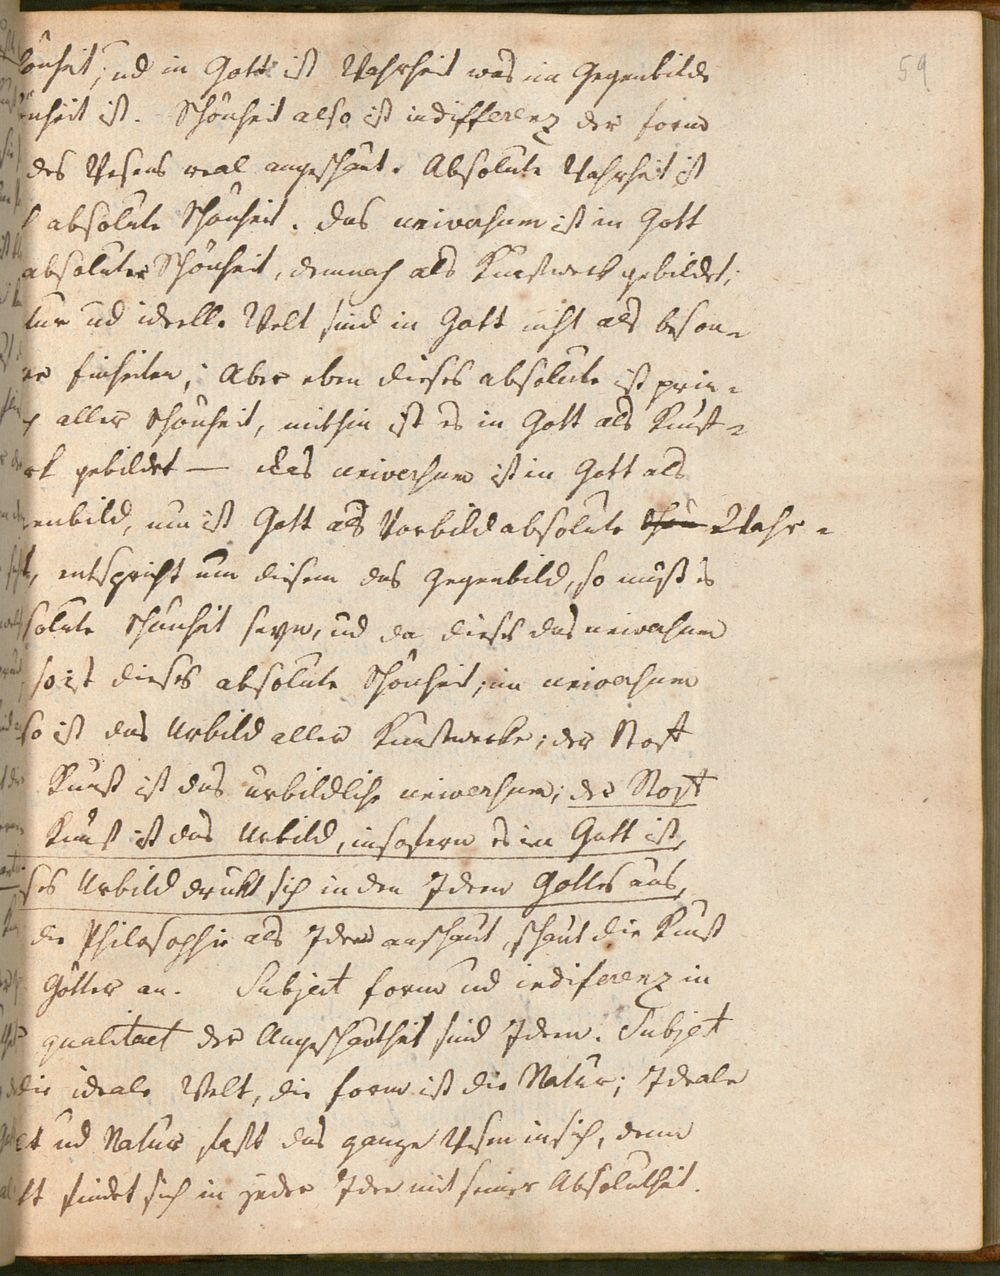 59
önheit; ud in Gott ist Wahrheit was im Gegenbilde
nheit ist. Schönheit also ist indifferenz der form
des Wesens real angeschaut. Absolute Wahrheit ist
absolute Schönheit. das universum ist in Gott
absoluter Schönheit, demnach als Kunstwerk gebildet;
tur ud ideelle Welt sind in Gott nicht als beson-
er Einheiten; Aber eben dieses absolute ist prin-
aller Schönheit, mithin ist es in Gott als Kunst-
rk gebildet — das universum ist in Gott als
enbild, nun ist Gott als Vorbild absolute Schön Wahr-
t, entspricht nun diesem das Gegenbild, so muß es
solute Schönheit seyn, ud da dieses das universum
so ist dieses absolute Schönheit; im universum
so ist das Urbild aller Kunstwerke; der Stoff
Kunst ist das urbildliche universum; der Stoff
Kunst ist das Urbild, insofern es in Gott ist,
ses Urbild drukt sich in den Ideen Gottes aus,
die Philosophie als Ideen anschaut, schaut die Kunst
Götter an. Subject form ud indiferenz in
qualitaet der Angeschautheit sind Ideen. Subjet
die ideale Welt, die form ist die Natur; Ideale
lt ud Natur faßt das ganze Wesen in sich, denn
lt findet sich in jeder Idee mit seiner Absolutheit.